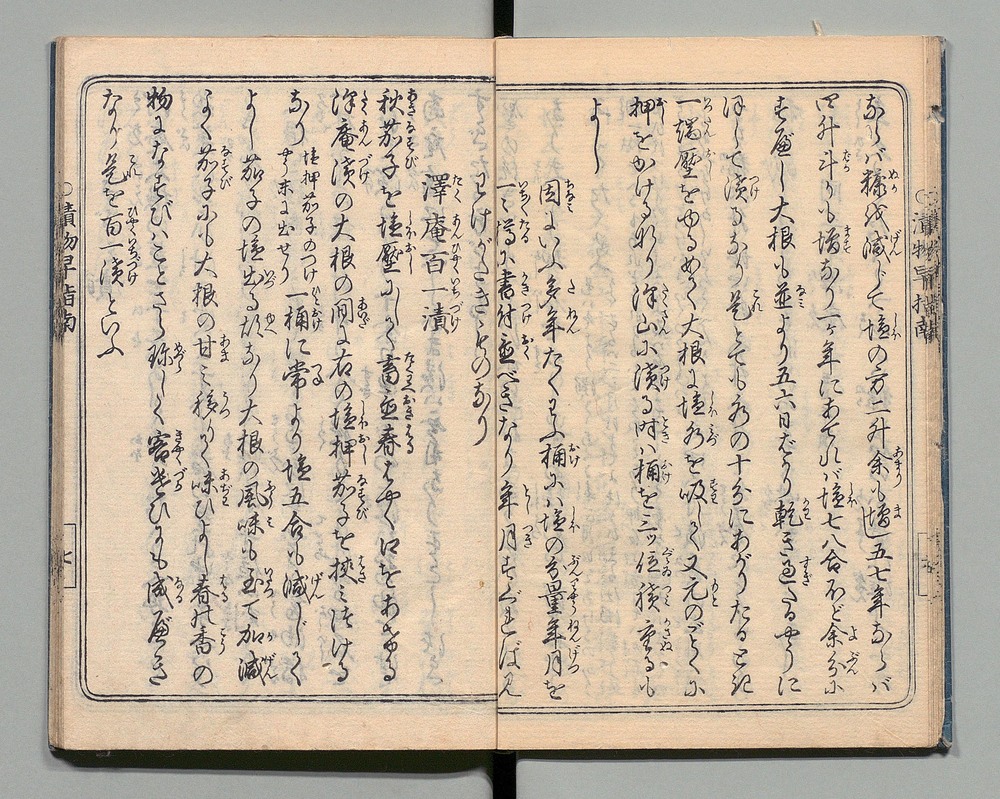 ならバ糠を減じて塩の方二升余も増五七年ならバ
四升斗りも増なり一ヶ年にあてれバ塩七八合ほど余分に
すべし大根も並より五六日ばかり乾き過たるやうに
して漬るなり是とても水の十分にあがりたるとき
一端圧をゆるめて大根に塩水を吸して又元のごとくに
押をかける也沢山に漬る時ハ桶を二ッ位積重るも
よし
因にいふ多年たくわふ桶にハ塩の分量年月を
一々樽に書付置べきなり年月すぐればん
わけがたきものなり
澤庵百一漬
秋茄子を塩圧にして蓄置春はやく口をあける
澤庵漬の大根の間に右の塩押茄子を挟ミつける
なり
塩押茄子のつけ
やう末に出せり
一桶に常より塩五合も減じて
よし茄子の塩出る故なり大根の風味も至て加減
よく茄子にも大根の甘ミ移りて味ひよし春の香の
物になすびハことさら珎しく客遣ひにも成べき
なり是を百一漬といふ
○漬物早指南
七
○漬物早指南